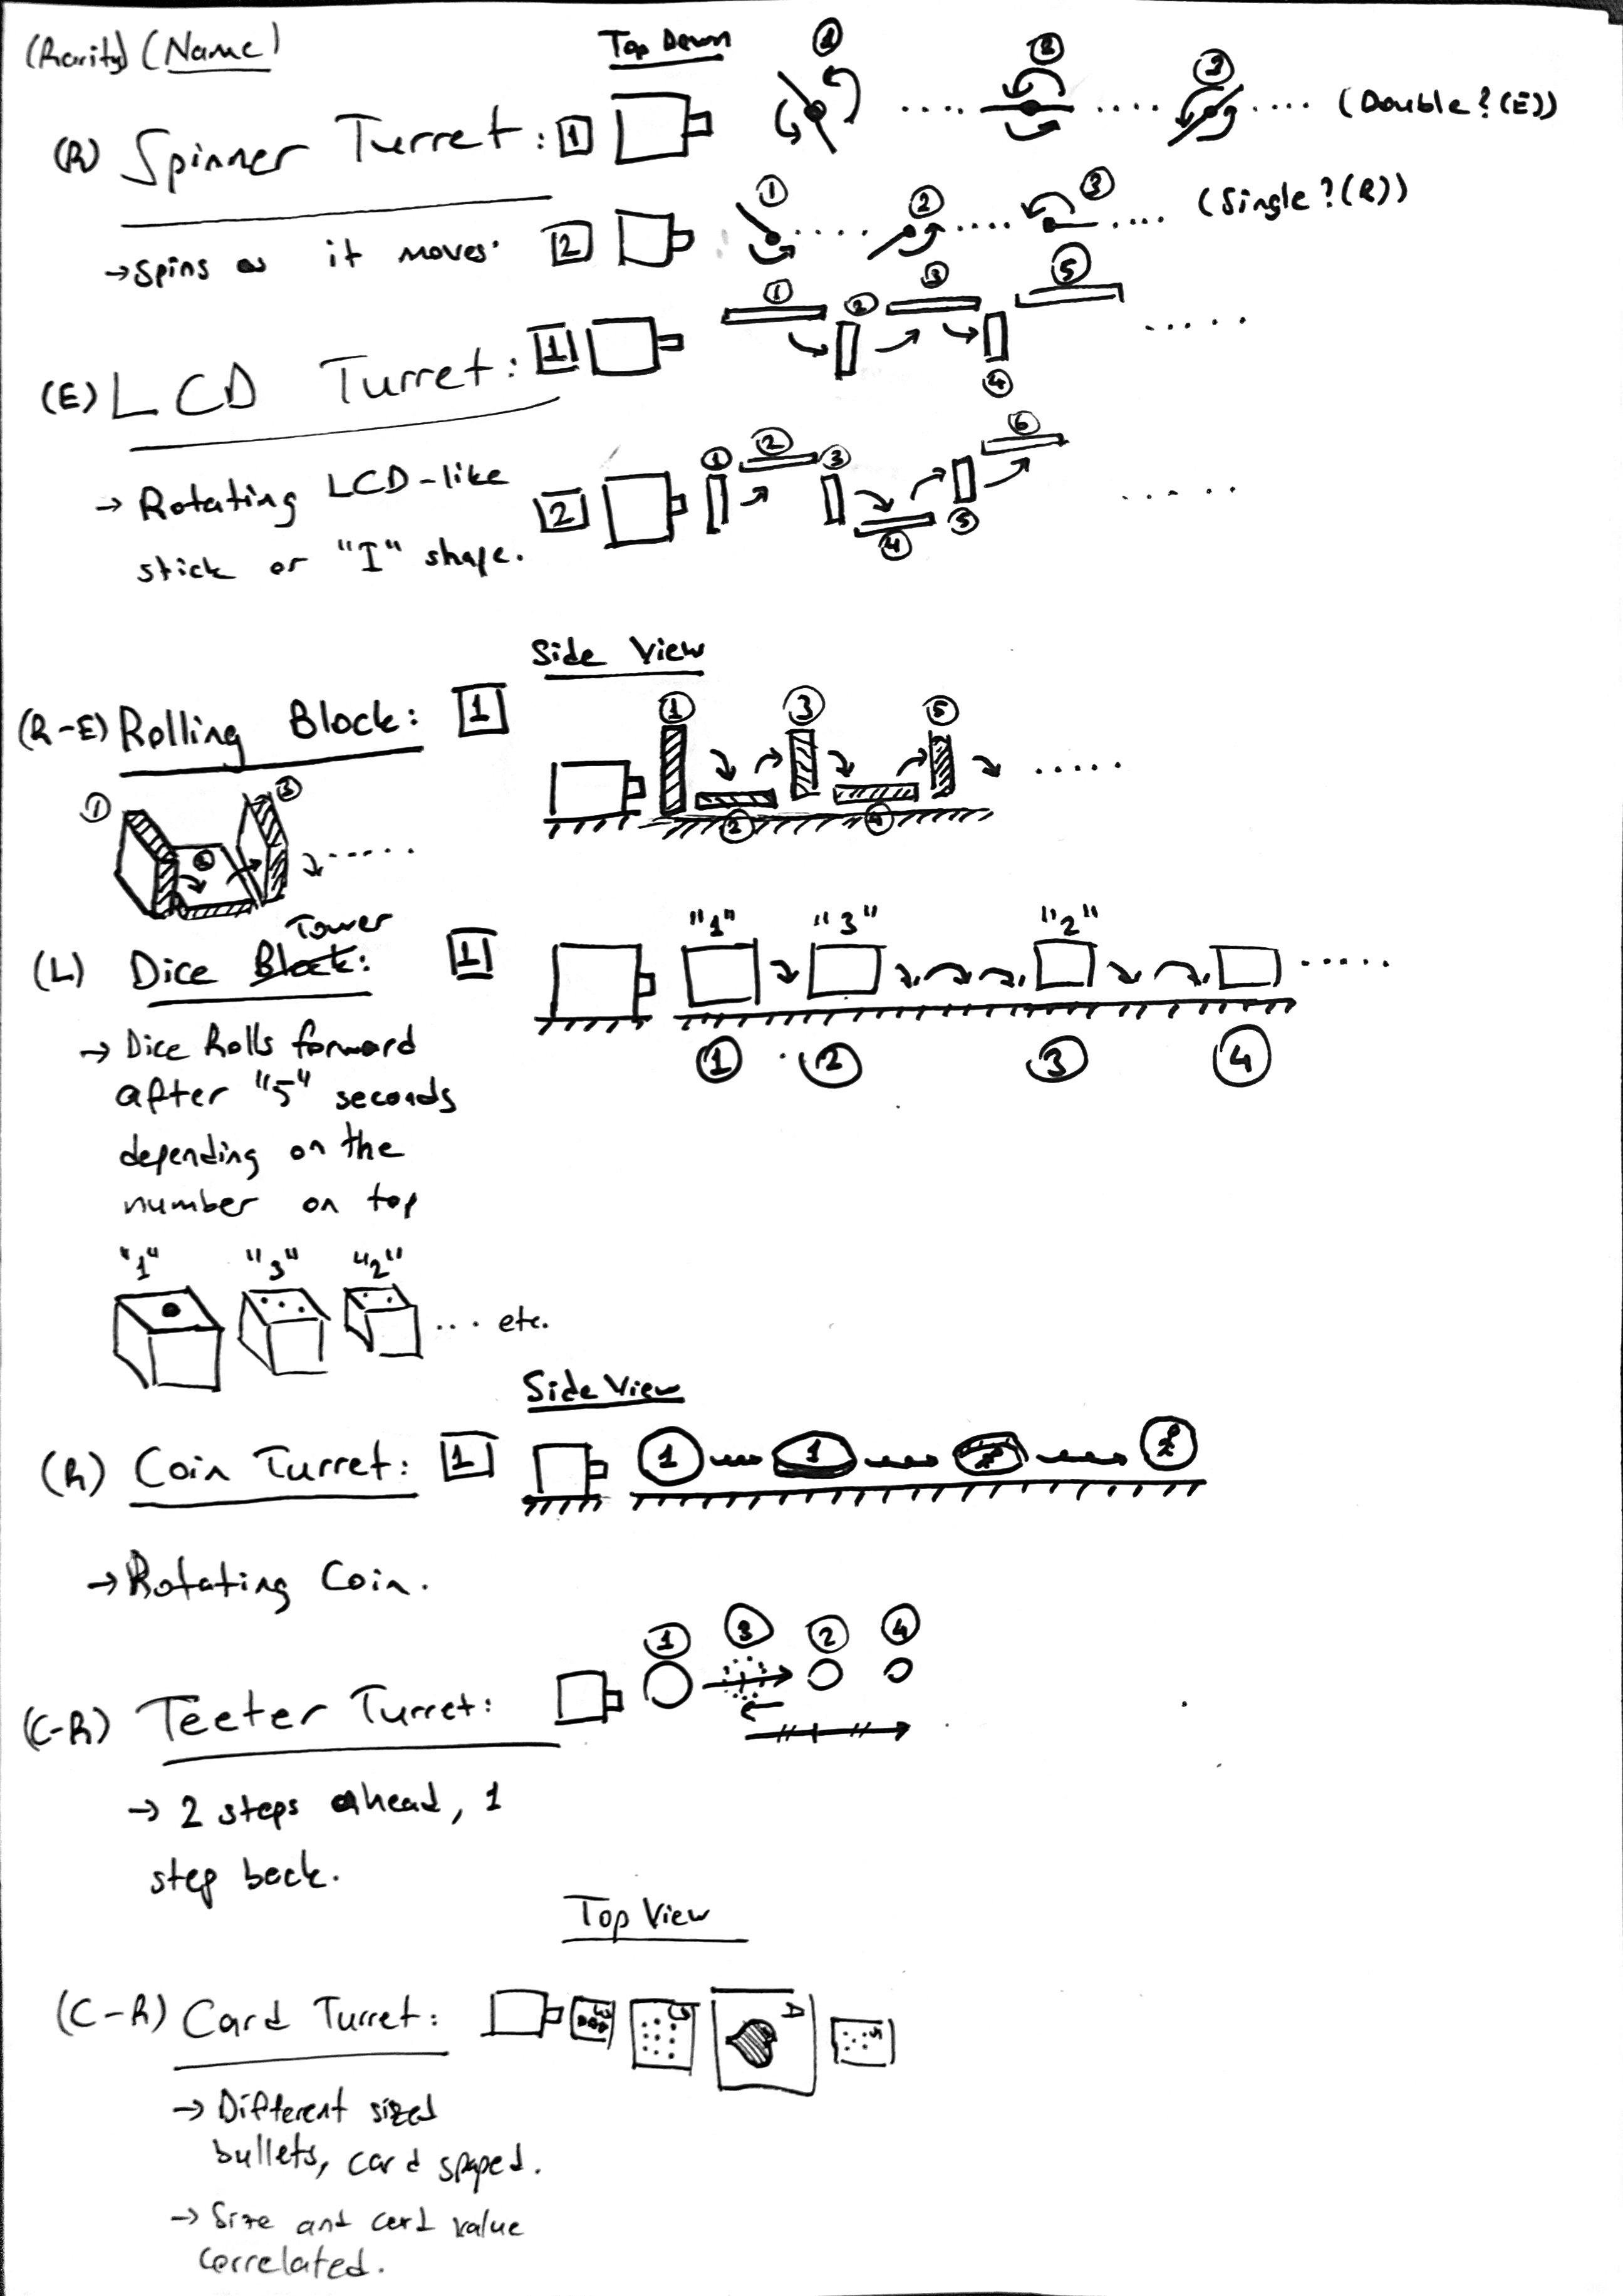 (Rarity) (Name)
Top Down
(R) Spinner Turret: 1
1 2 3
(Double? (E))
→ Spins as it moves. 2
1 2 3
(Single? (R))
(E) LCD Turret: 1
1 2 3 4 5
→ Rotating LCD-like
stick or "I" shape.
2
1 2 3 4 5 6
Side View
(R-E) Rolling Block: 1
1 2 3 4 5
1 2 3
Tower
(L) Dice Block: 1
"1" "3" "2"
1 2 3 4
→ Dice Rolls forward
after "5" seconds
depending on the
number on top
"1" "3" "2"
... etc.
Side View
(R) Coin Turret: 1
1 1 2 2
→ Rotating Coin.
(C-R) Teeter Turret:
1 3 2 4
→ 2 steps ahead, 1
step back.
Top View
(C-R) Card Turret:
→ Different sized
bullets, card spaped.
→ Size and card value
correlated.